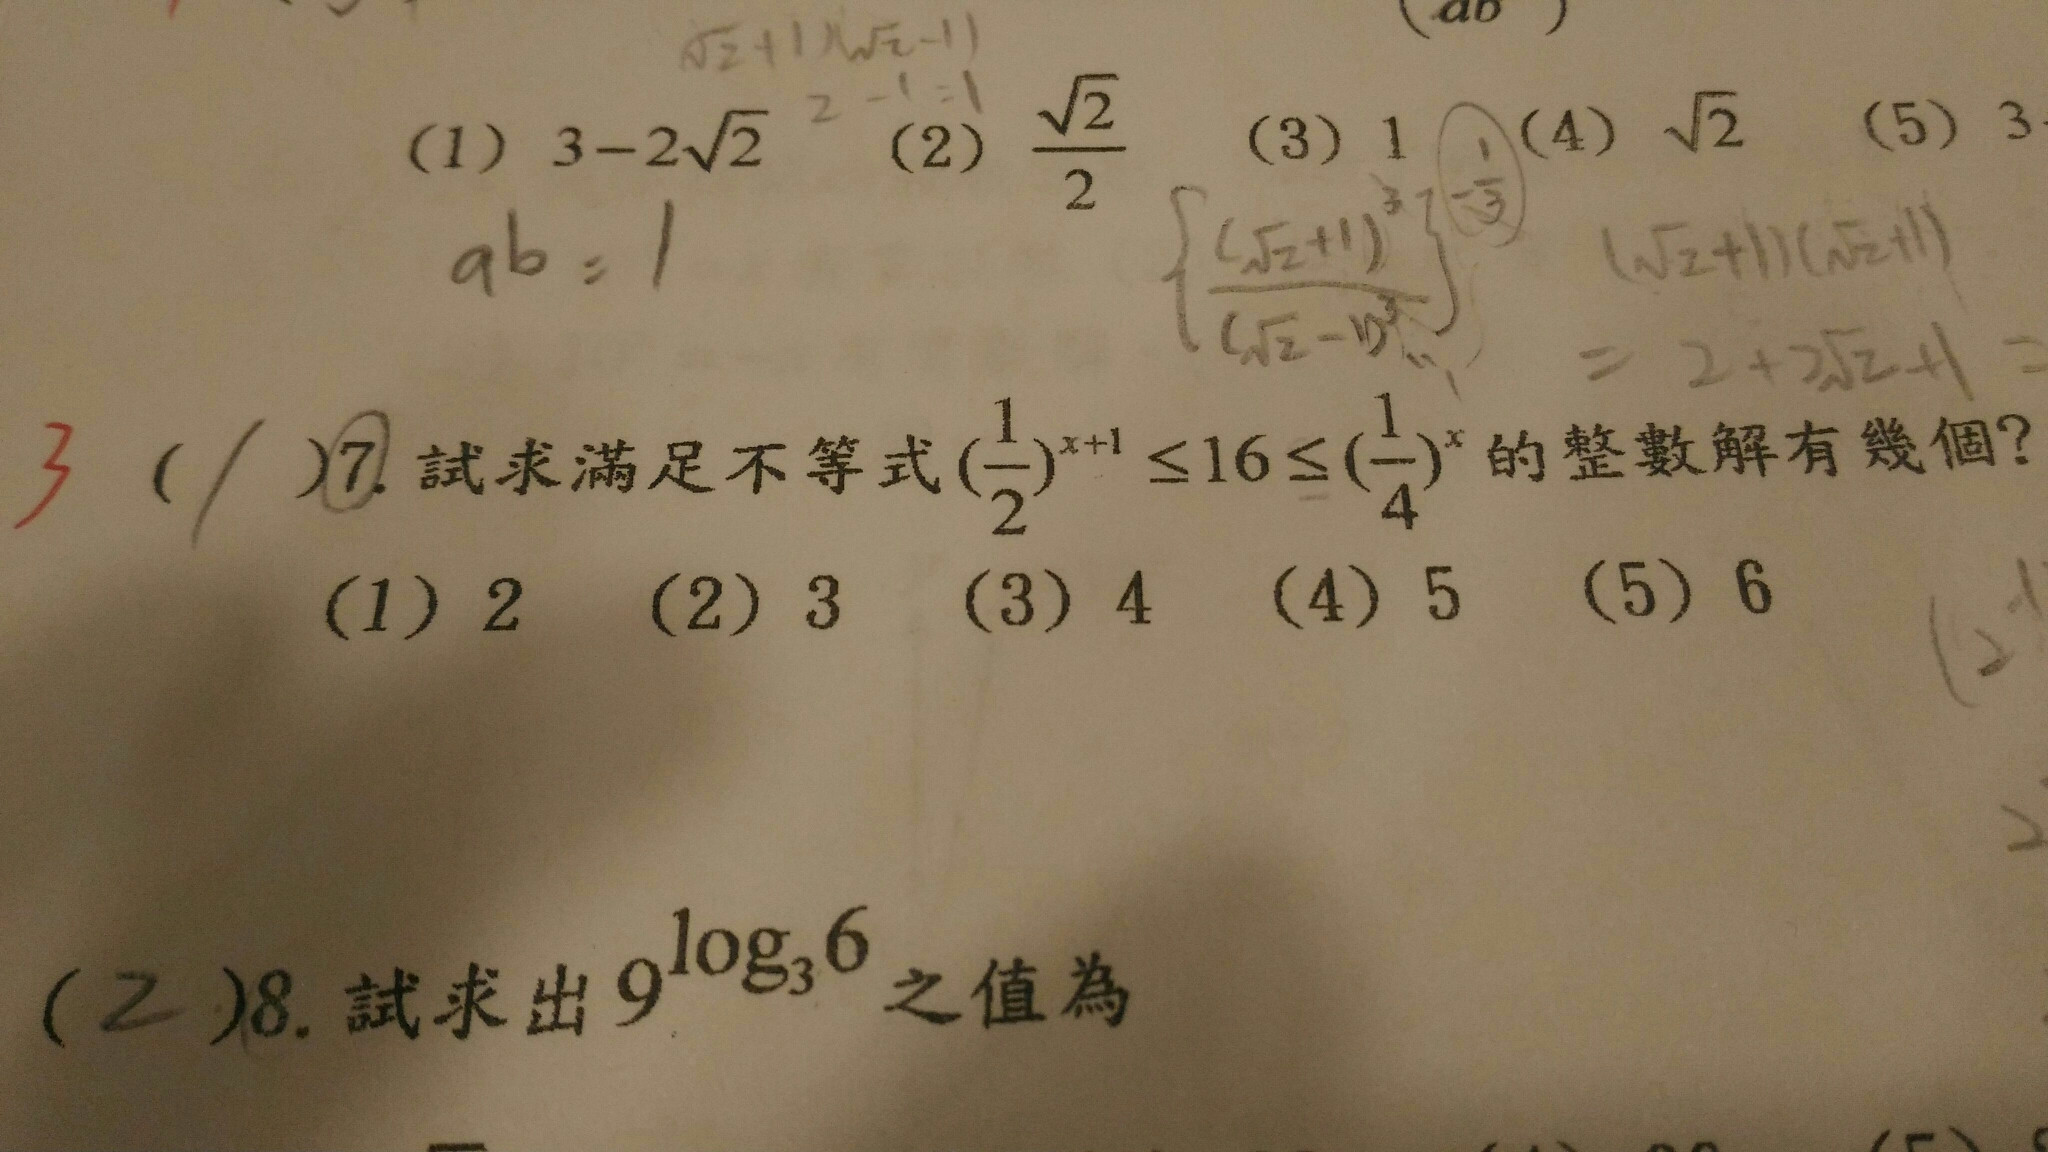 (ab)
(√2+1)(√2-1)
2-1=1
(1) 3-2√2 (2) √2/2 (3) 1 (4) √2 (5) 3-
ab=1 {(√2+1)³/(√2-1)³}^(-1/3) (√2+1)(√2+1)
= 2+2√2+1 =
3 ( / )7. 試求滿足不等式(1/2)^(x+1) ≤16≤(1/4)^x 的整數解有幾個?
(1) 2 (2) 3 (3) 4 (4) 5 (5) 6
(2^-1
2
(2)8. 試求出9^(log₃6)之值為